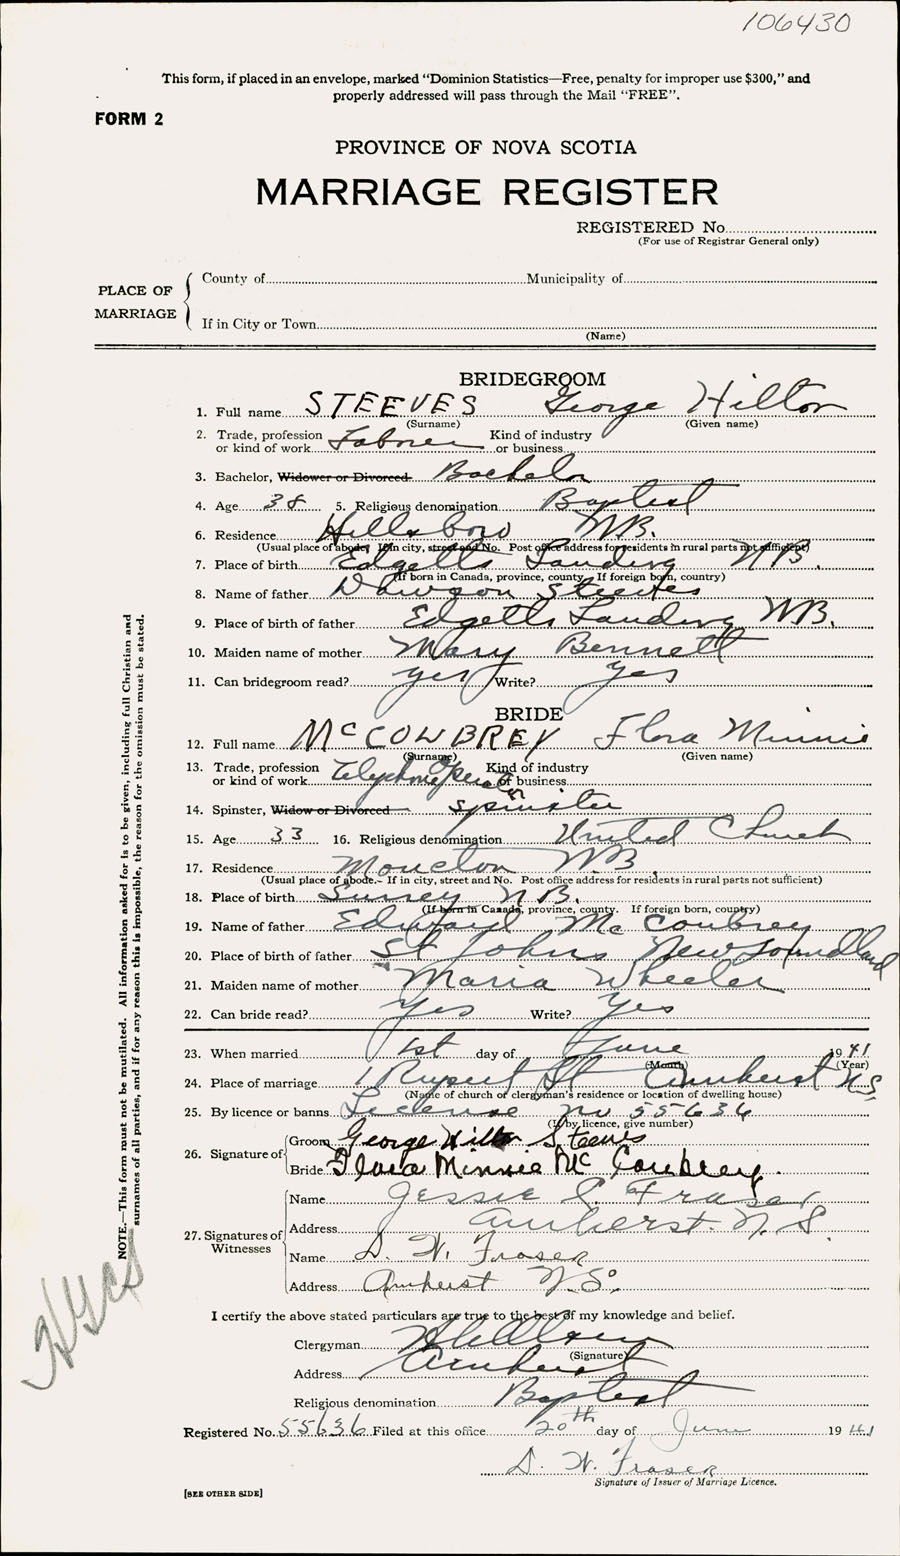 106430
This form, if placed in an envelope, marked “Dominion Statistics—Free, penalty for improper use $300,” and
properly addressed will pass through the Mail “FREE”.
FORM 2
PROVINCE OF NOVA SCOTIA
MARRIAGE REGISTER
REGISTERED No.
(For use of Registrar General only)
PLACE OF MARRIAGE
County of Municipality of
If in City or Town
(Name)
BRIDEGROOM
1. Full name STEEVES George Hilton
(Surname) (Given name)
2. Trade, profession or kind of work Labner Kind of industry or business
3. Bachelor, Widower or Divorced Bachelor
4. Age 38 5. Religious denomination Baptist
6. Residence Hillsboro N.B.
(Usual place of abode. If in city, street and No. Post office address for residents in rural parts not sufficient)
7. Place of birth Edgetts Landing N.B.
(If born in Canada, province, county. If foreign born, country)
8. Name of father Dawson Steeves
9. Place of birth of father Edgetts Landing N.B.
10. Maiden name of mother Mary Bennett
11. Can bridegroom read? yes Write? yes
BRIDE
12. Full name McCOWBREY Flora Minnie
(Surname) (Given name)
13. Trade, profession or kind of work Telephone Operator Kind of industry or business
14. Spinster, Widow or Divorced spinster
15. Age 33 16. Religious denomination United Church
17. Residence Moncton N.B.
(Usual place of abode.- If in city, street and No. Post office address for residents in rural parts not sufficient)
18. Place of birth Surrey N.B.
(If born in Canada, province, county. If foreign born, country)
19. Name of father Edward McCoubrey
20. Place of birth of father St Johns Newfoundland
21. Maiden name of mother Maria Wheeler
22. Can bride read? Yes Write? Yes
23. When married 1st day of June 1941
(Month) (Year)
24. Place of marriage 1 Rupert St Amherst N.S.
(Name of church or clergyman's residence or location of dwelling house)
25. By licence or banns License no 55636
(If by licence, give number)
26. Signature of
Groom George Hilton Steeves
Bride Flora Minnie McCoubrey.
27. Signatures of Witnesses
Name Jessie E. Fraser
Address Amherst. N.S.
Name D. W. Fraser
Address Amherst N.S.
I certify the above stated particulars are true to the best of my knowledge and belief.
Clergyman
(Signature)
Address Amherst
Religious denomination Baptist
Registered No. 55636 Filed at this office 20th day of June 1941
D. W. Fraser
Signature of Issuer of Marriage Licence.
[SEE OTHER SIDE]
NOTE.—This form must not be mutilated. All information asked for is to be given, including full Christian and
surnames of all parties, and if for any reason this is impossible, the reason for the omission must be stated.